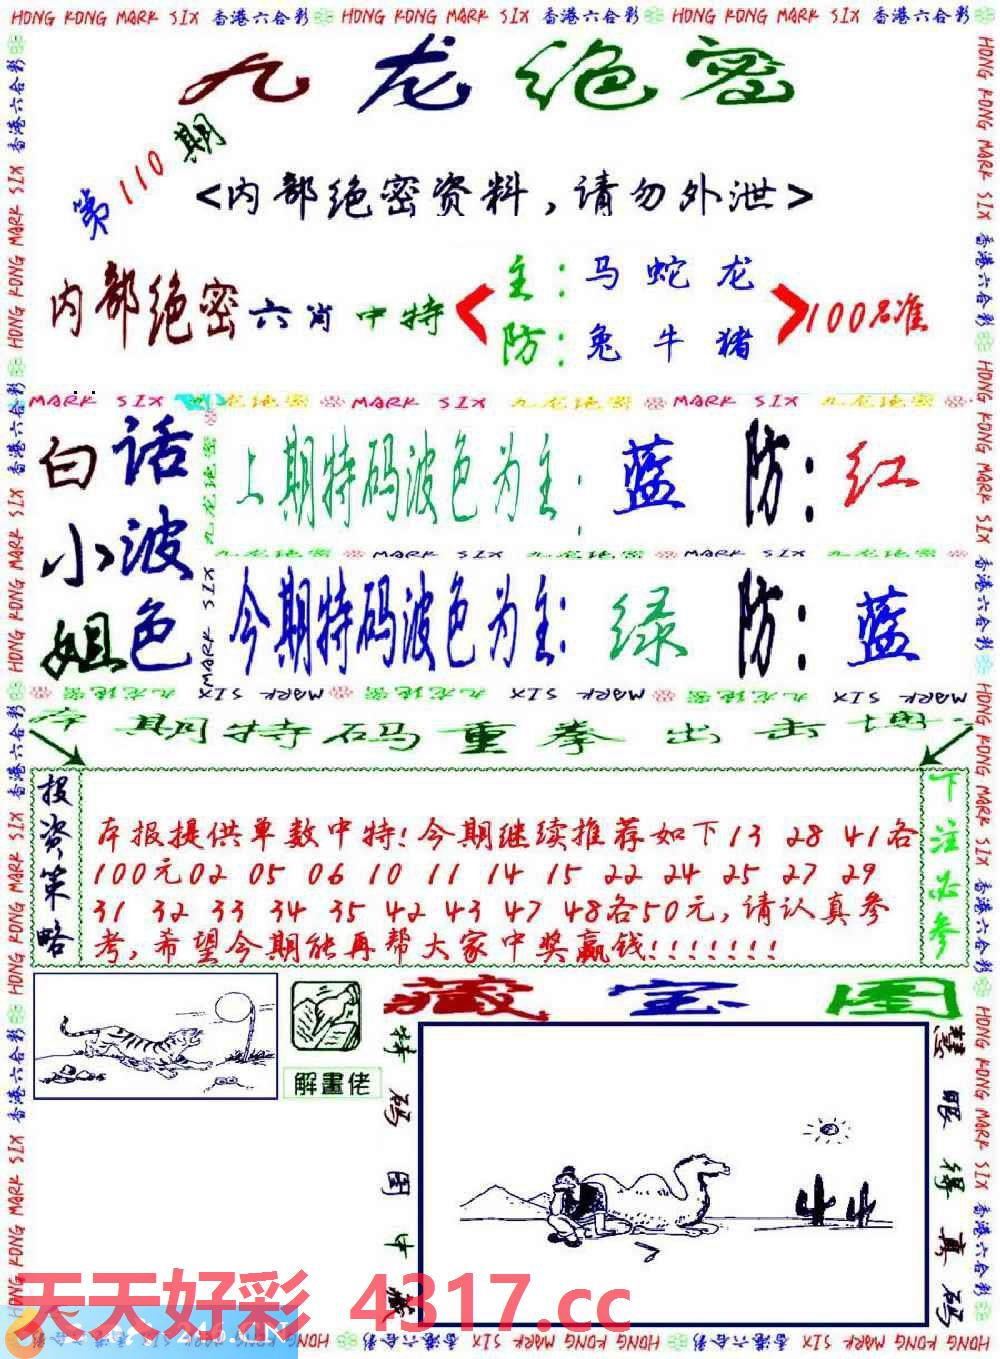 HONG KONG MARK SIX 香港六合彩 HONG KONG MARK SIX 香港六合彩 HONG KONG MARK SIX 香港六合彩
九龙绝密
第110期
<内部绝密资料,请勿外泄>
内部绝密六肖中特
主:马 蛇 龙
防:兔 牛 猪
100%准
MARK SIX 九龙绝密 MARK SIX 九龙绝密 MARK SIX 九龙绝密
白小姐
话波色
上期特码波色为主:蓝 防:红
九龙绝密 MARK SIX 九龙绝密 MARK SIX 九龙绝密
今期特码波色为主:绿 防:蓝
MARK SIX 九龙绝密 MARK SIX 九龙绝密 MARK SIX 九龙绝密
本期特码重拳出击
投资策略
本报提供单数中特!今期继续推荐如下13 28 41各
100元02 05 06 10 11 14 15 22 24 25 27 29
31 32 33 34 35 42 43 47 48各50元,请认真参
考,希望今期能再帮大家中奖赢钱!!!!!!!
下注必参
藏宝图
解畫佬
特码图中藏
慧眼得真码
天天好彩 4317.cc
HONG KONG MARK SIX 香港六合彩